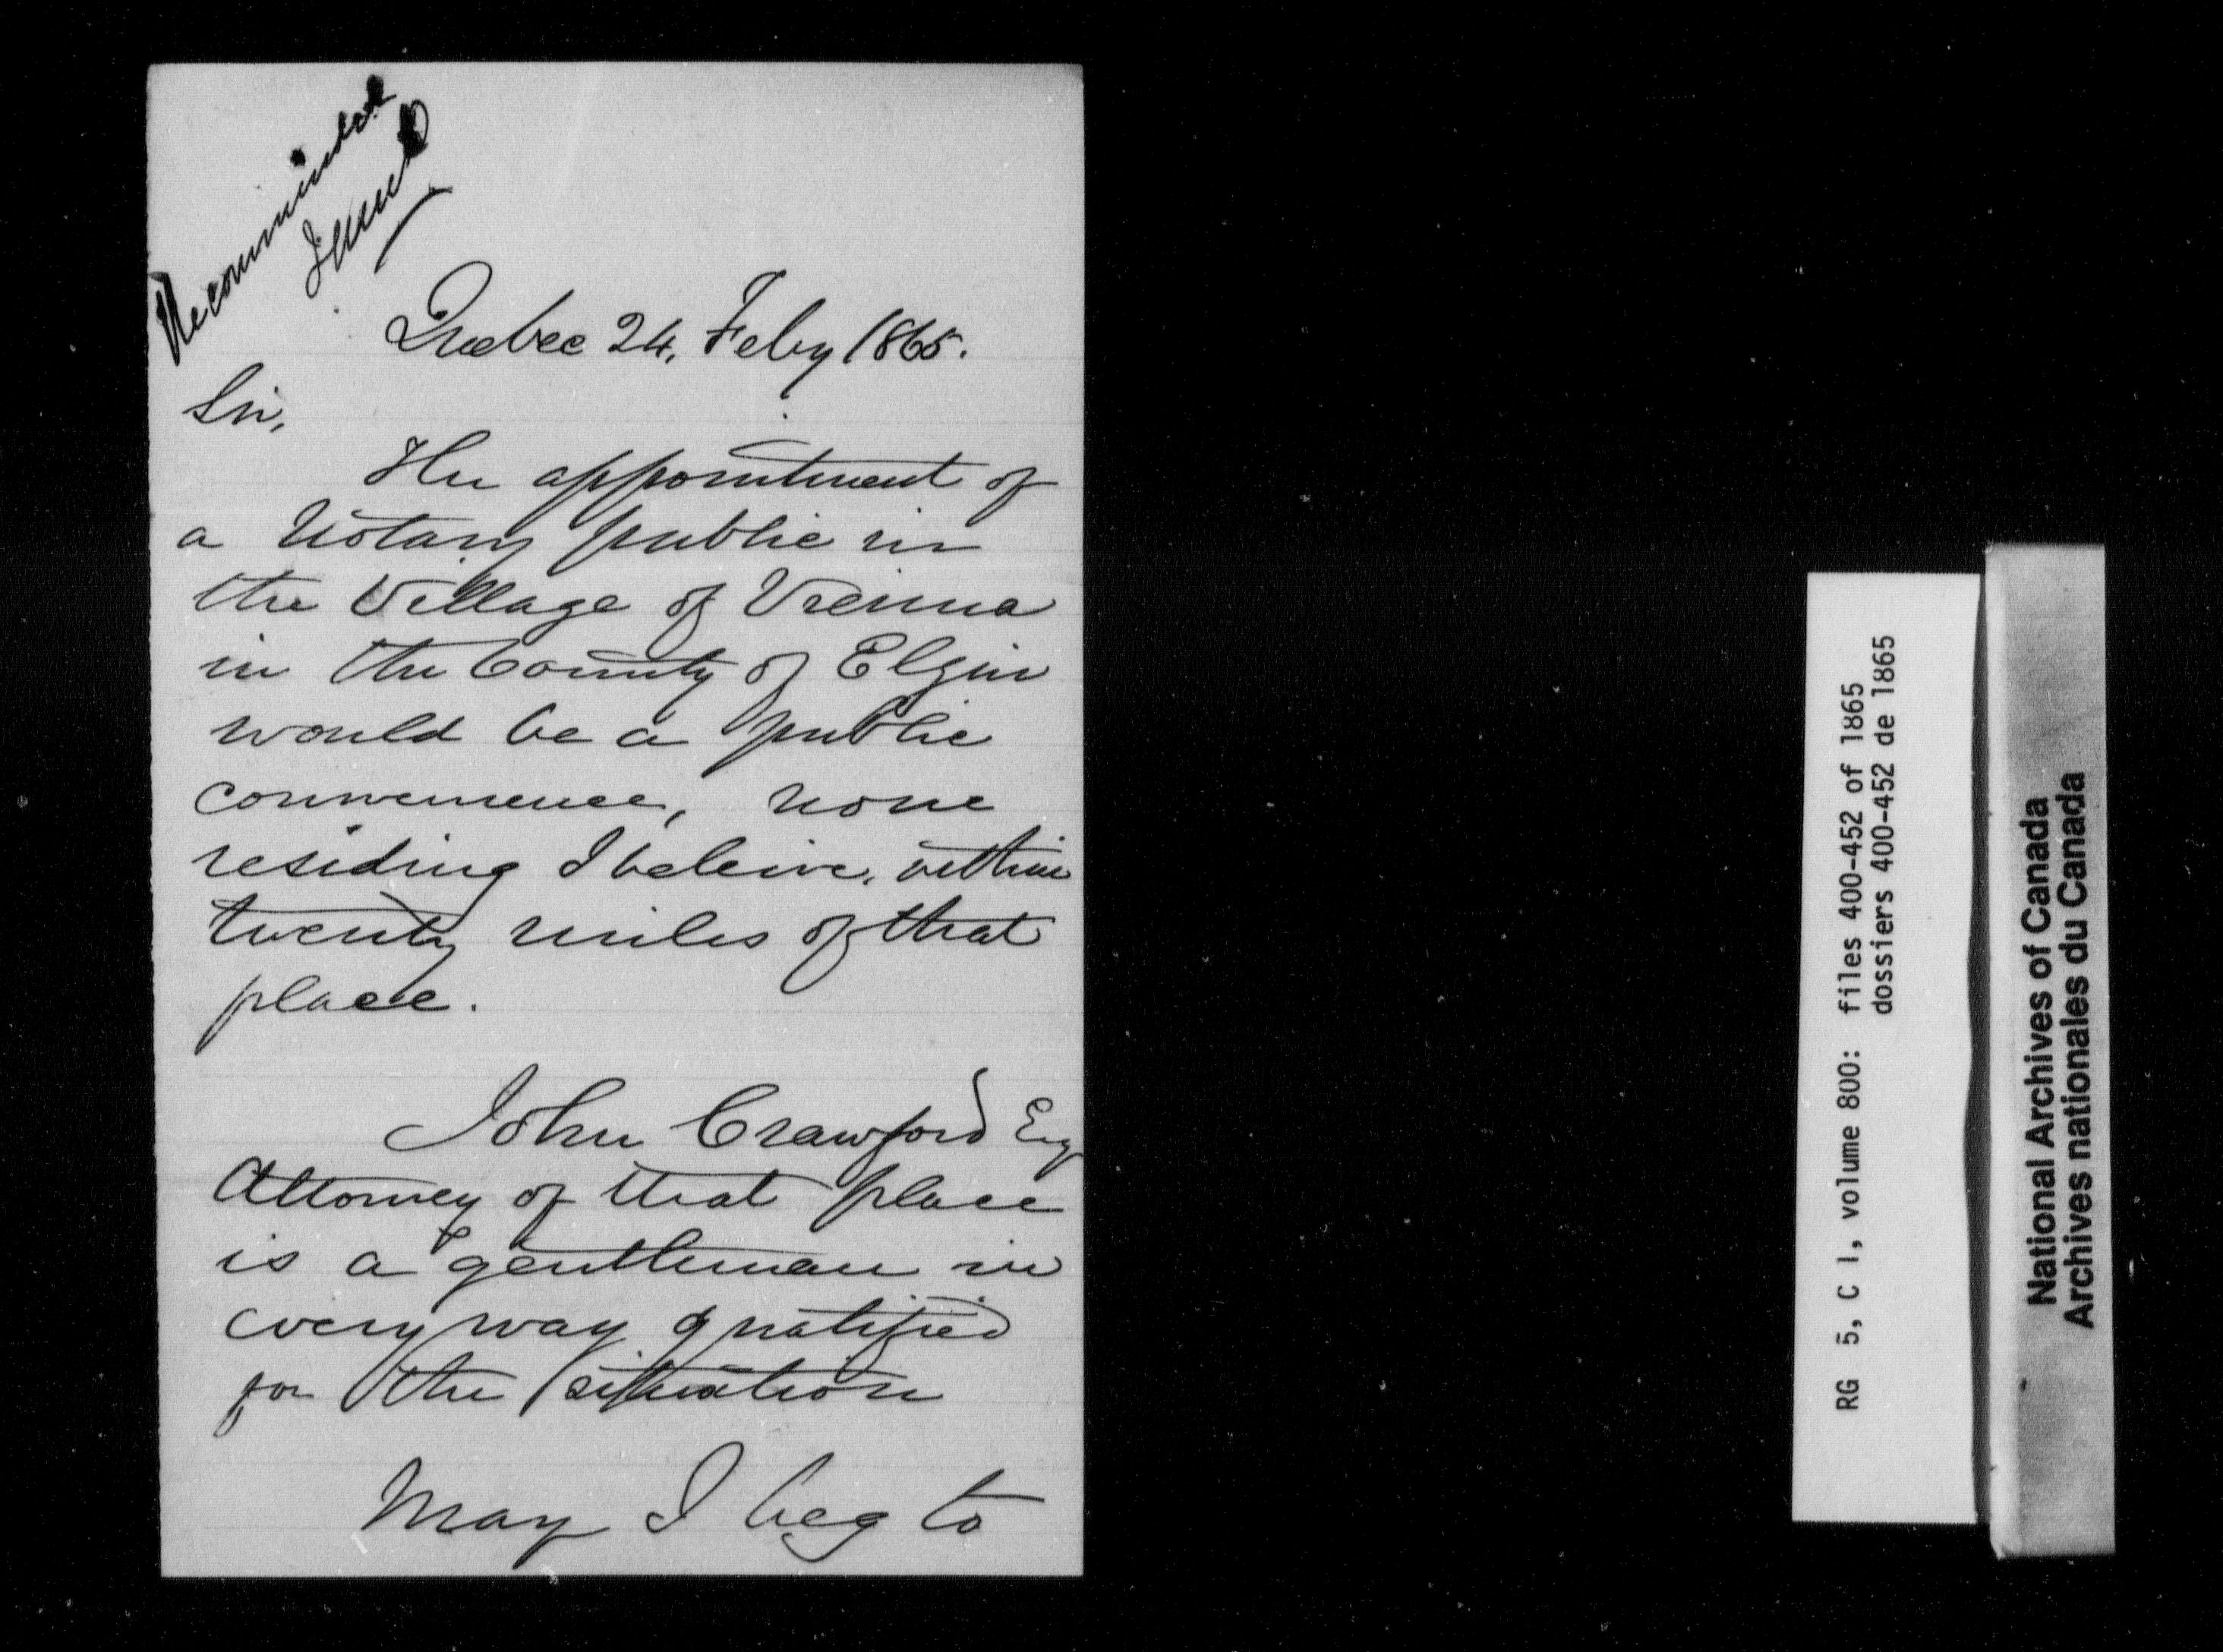 Recommended
Quebec 24, Feby 1865.
Sir,
The appointment of
a Notary public in
the Village of Vienna
in the County of Elgin
would be a public
convenience, none
residing I beleive, within
twenty miles of that
place.
John Crawford Esq
Attorney of that place
is a gentleman in
every way qualified
for the situation
May I beg to
RG 5, C 1, volume 800: files 400-452 of 1865
dossiers 400-452 de 1865
National Archives of Canada
Archives nationales du Canada